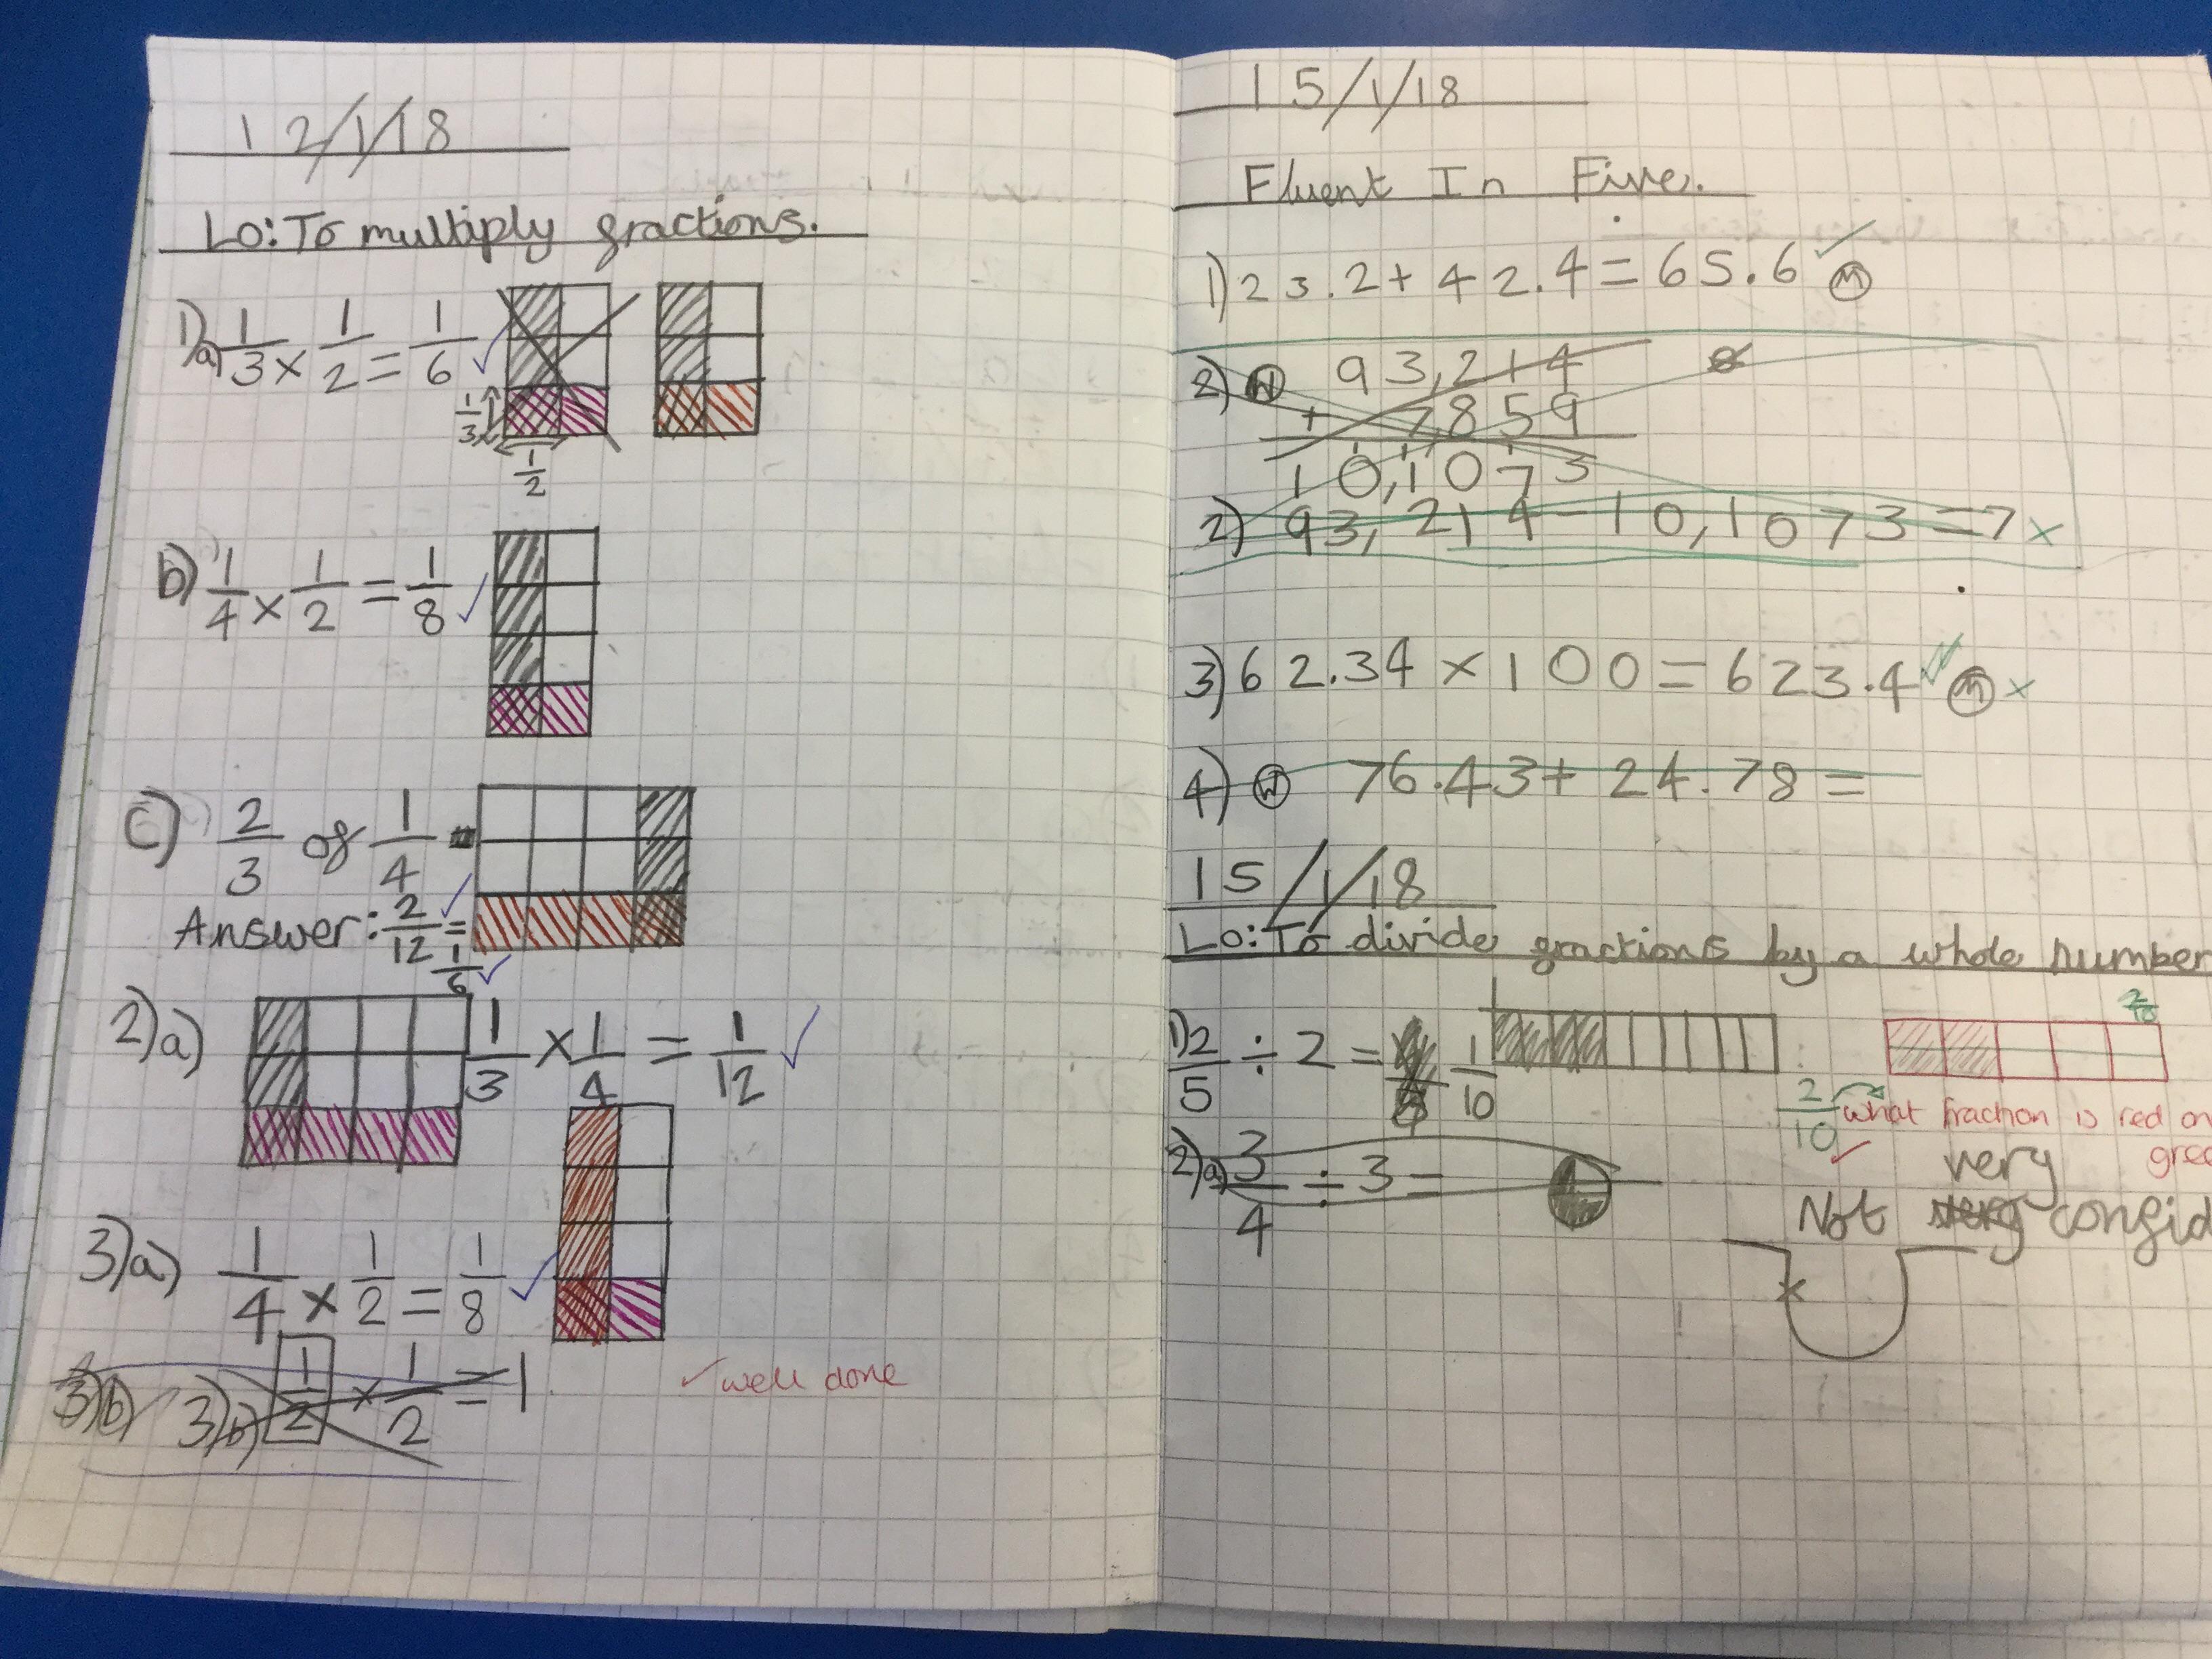 12/1/18
Lo: To multiply fractions.
1)a) 1/3 × 1/2 = 1/6 ✓
1/3
1/2
b) 1/4 × 1/2 = 1/8 ✓
c) 2/3 of 1/4 =
Answer: 2/12 ✓ = 1/6 ✓
2)a) 1/3 × 1/4 = 1/12 ✓
3)a) 1/4 × 1/2 = 1/8 ✓
3)b) 3)b) 1/2 × 1/2 = 1
✓ well done
15/1/18
Fluent In Five.
1) 23.2 + 42.4 = 65.6 ✓ M
2) W 93,214
+ 7859
10,1073
2) 93,214 - 10,1073 = 7 ×
3) 62.34 × 100 = 623.4 ✓ M ×
4) W 76.43 + 24.78 =
15/1/18
Lo: To divide fractions by a whole number
1) 2/5 ÷ 2 = 1/10
2/10
2/10 what fraction is red on
✓ gree
2)a) 3/4 ÷ 3 =
very
Not confid
×